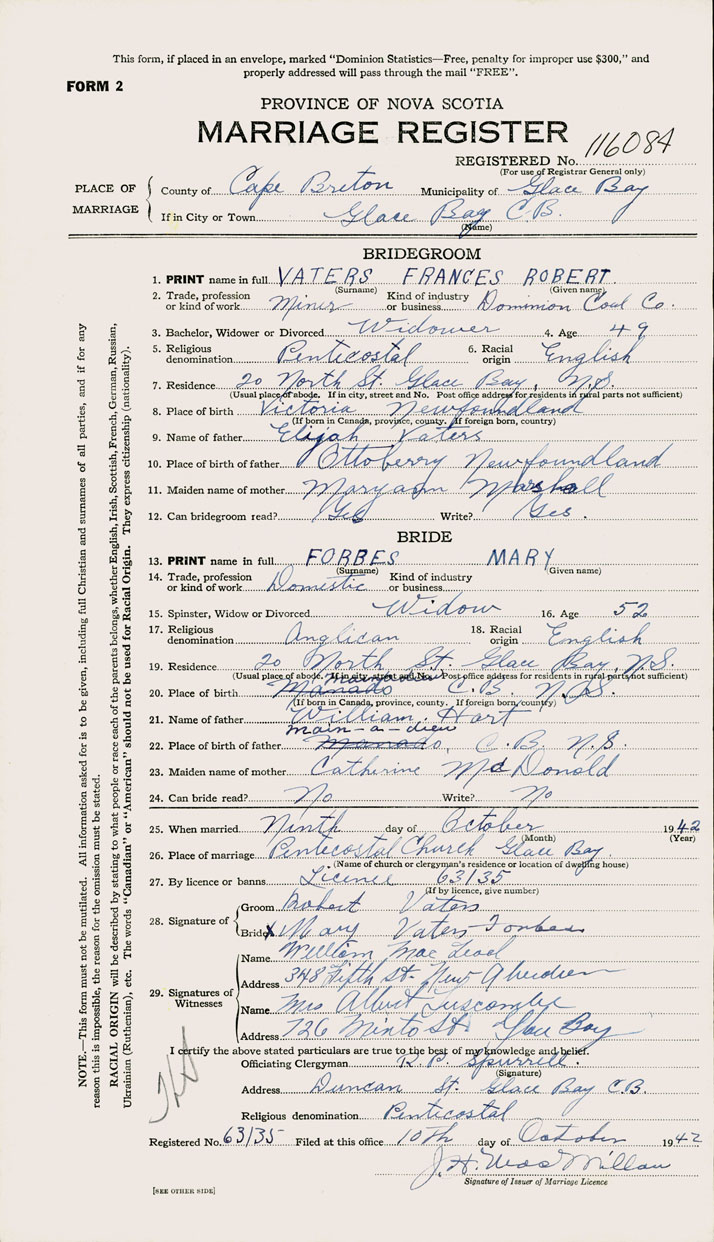 This form, if placed in an envelope, marked “Dominion Statistics—Free, penalty for improper use $300,” and
properly addressed will pass through the mail “FREE”.
FORM 2
PROVINCE OF NOVA SCOTIA
MARRIAGE REGISTER
REGISTERED No. 116084
(For use of Registrar General only)
PLACE OF MARRIAGE
County of Cape Breton Municipality of Glace Bay
If in City or Town Glace Bay C.B.
(Name)
BRIDEGROOM
1. PRINT name in full VATERS FRANCES ROBERT
(Surname) (Given name)
2. Trade, profession or kind of work Miner Kind of industry or business Dominion Coal Co.
3. Bachelor, Widower or Divorced Widower 4. Age 49
5. Religious denomination Pentecostal 6. Racial origin English
7. Residence 20 North St. Glace Bay, N.S.
(Usual place of abode. If in city, street and No. Post office address for residents in rural parts not sufficient)
8. Place of birth Victoria Newfoundland
(If born in Canada, province, county. If foreign born, country)
9. Name of father Elijah Vaters
10. Place of birth of father Ottoberry Newfoundland
11. Maiden name of mother Maryann Marshall
12. Can bridegroom read? Yes Write? Yes.
BRIDE
13. PRINT name in full FORBES MARY
(Surname) (Given name)
14. Trade, profession or kind of work Domestic Kind of industry or business
15. Spinster, Widow or Divorced Widow 16. Age 52
17. Religious denomination Anglican 18. Racial origin English
19. Residence 20 North St. Glace Bay, N.S.
(Usual place of abode. If in city, street and No. Post office address for residents in rural parts not sufficient)
20. Place of birth Manado C.B. N.S.
(If born in Canada, province, county. If foreign born, country)
21. Name of father William Hart
main-a-dieu
22. Place of birth of father Manado, C.B. N.S.
23. Maiden name of mother Catherine McDonald
24. Can bride read? No Write? No
25. When married Ninth day of October 1942
(Month) (Year)
26. Place of marriage Pentecostal Church Glace Bay.
(Name of church or clergyman's residence or location of dwelling house)
27. By licence or banns Licence 63135
(If by licence, give number)
28. Signature of
Groom Robert Vaters
Bride X Mary Vaters Forbes
29. Signatures of Witnesses
Name William MacLeod
Address 348 Fifth St. New Aberdeen
Name Mrs Albert Luscombe
Address 726 Minto St. Glace Bay
I certify the above stated particulars are true to the best of my knowledge and belief.
Officiating Clergyman R. P. Spurrell.
(Signature)
Address Duncan St. Glace Bay C.B.
Religious denomination Pentecostal
Registered No. 63135 Filed at this office 10th day of October 1942
J. H. MacMillan
Signature of Issuer of Marriage Licence
[SEE OTHER SIDE]
NOTE.—This form must not be mutilated. All information asked for is to be given, including full Christian and surnames of all parties, and if for any
reason this is impossible, the reason for the omission must be stated.
RACIAL ORIGIN will be described by stating to what people or race each of the parents belongs, whether English, Irish, Scottish, French, German, Russian,
Ukrainian (Ruthenian), etc. The words “Canadian” or “American” should not be used for Racial Origin. They express citizenship (nationality).